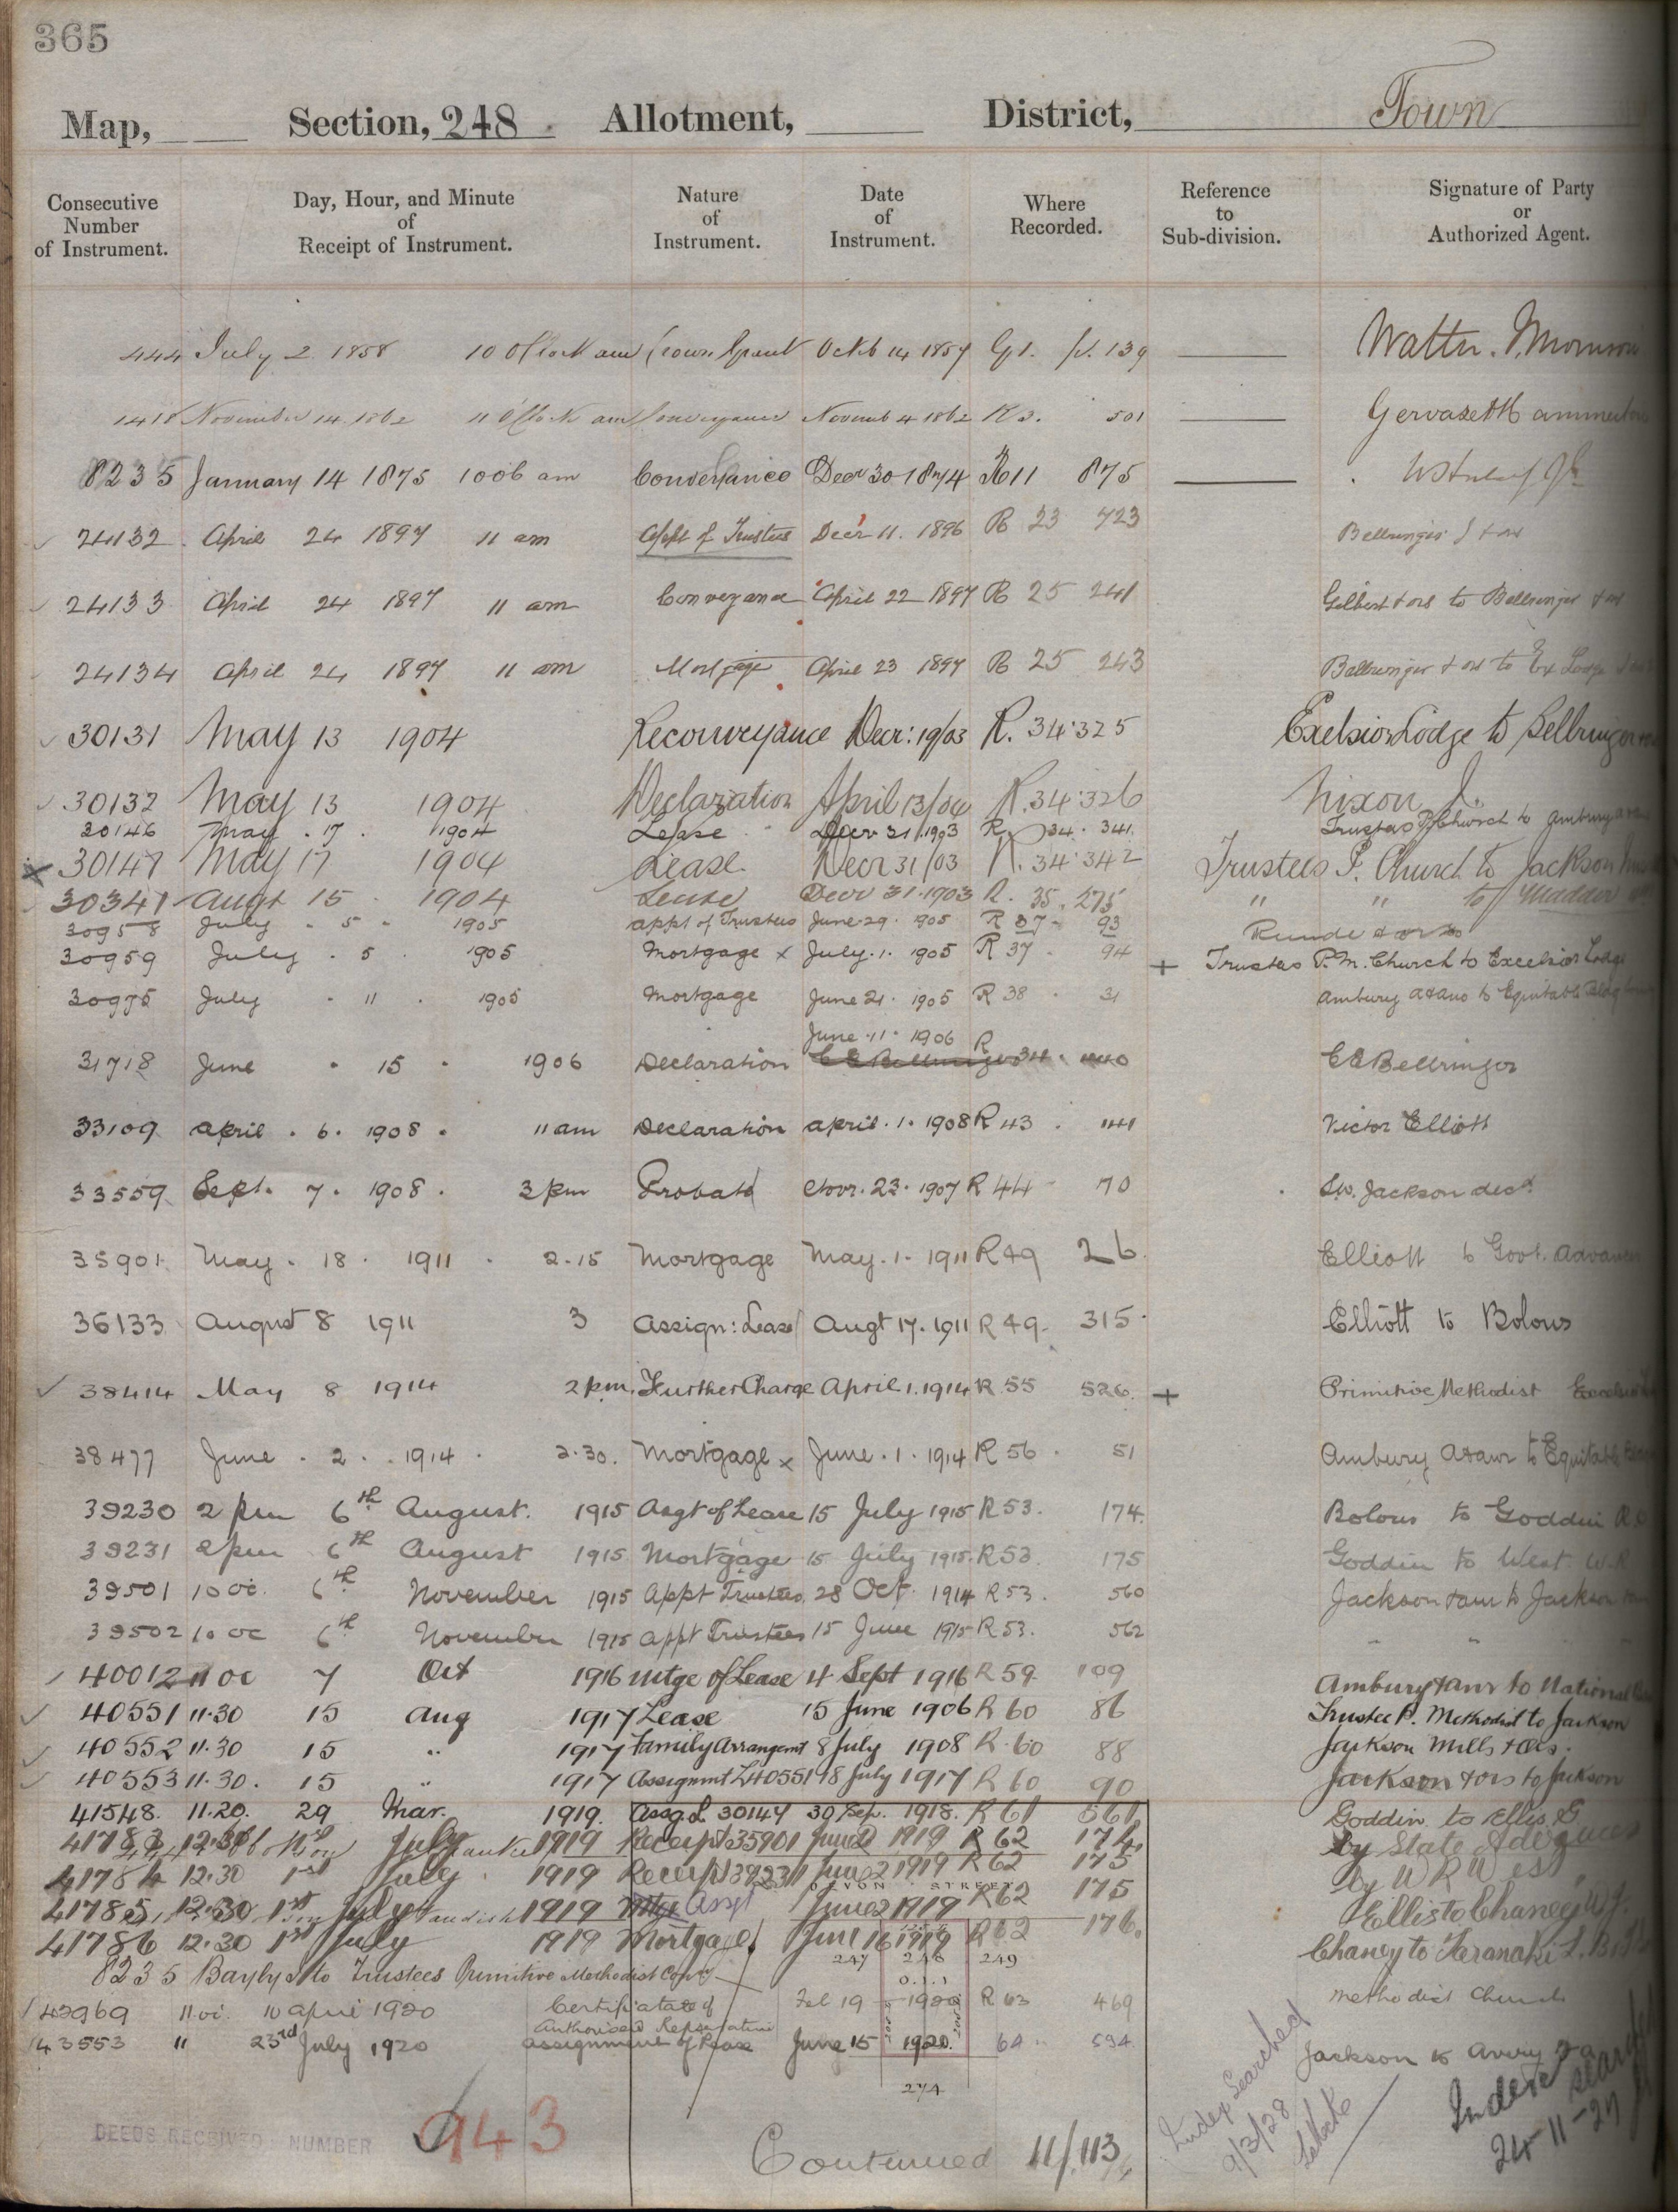 365
Map, Section, 248. Allotment, District, Town
Consecutive Number of Instrument. Day, Hour, and Minute of Receipt of Instrument. Nature of Instrument. Date of Instrument. Where Recorded. Reference to Sub-division. Signature of Party or Authorized Agent.
444 July 2 1858 10 O'Clock am Crown Grant Octob 14 1857 G1. fl. 139 Walter
1418 November 14 1862 11 O'Clock am Conveyance Novemb 4 1862 R 3. 501
8235 January 14 1875 10 06 am Conveyance Decr 30 1874 R11 875
24132 April 24 1897 11 am Appt of Trustees Decr 11. 1896 R 23 723 Bellringer J + ors
24133 April 24 1897 11 am Conveyance April 22 1897 R 25 241 Gilbert + ors to Bellringer + ors
24134 April 24 1897 11 am Mortgage April 23 1897 R 25 243 Bellringer + ors to Ex Lodge
30131 May 13 1904 Reconveyance Decr: 19/03 R. 34·325 Excelsior Lodge to Bellringer
30132 May 13 1904 Declaration April 13/04 R. 34·326 Nixon J.
30146 May . 17 . 1904 Lease Decr 31. 1903 R. 34. 341. Trustees P. Church to Ambury
x 30147 May 17 1904 Lease. Decr 31/03 R. 34·342 Trustees P. Church to Jackson
30341 Augt 15 1904 Lease Decr 31. 1903 R. 35. 275 " " to Maddor
30958 July . 5 . 1905 appt of Trustees June 29. 1905 R 37 - 93 Runde + ors
30959 July . 5 . 1905 Mortgage x July. 1. 1905 R 37 . 94 + Trustees P. M. Church to Excelsior Lodge
30975 July . 11 . 1905 Mortgage June 21. 1905 R 38 . 31 Ambury A + ano to Equitable Bldg
June. 11. 1906 R
31718 June . 15 . 1906 Declaration C E Bellringer 34. 440 C E Bellringer
33109 April . 6 . 1908 . 11 am Declaration April. 1. 1908 R 43 . 141 Victor Elliott
33559 Sept. 7 . 1908 . 3 pm Probate Novr. 23. 1907 R 44 - 70 S.W. Jackson decd
35901 May . 18 . 1911 . 2.15 Mortgage May. 1. 1911 R 49 26. Elliott to Govt. Advances
36133 August 8 1911 3 Assign: Lease Augt 17. 1911 R 49. 315. Elliott to Bolous
38414 May 8 1914 2 pm. Further Charge April 1. 1914 R. 55 526. + Primitive Methodist
38477 June . 2 . 1914 . 2.30. Mortgage x June. 1. 1914 R 56 . 51 Ambury A + anr to Equitable
39230 2 pm 6th August. 1915 Asgt of Lease 15 July 1915 R 53. 174. Bolous to Goddin
39231 2 pm 6th August 1915 Mortgage 15 July 1915. R 53. 175 Goddin to West W. R
39501 10 oc. 6th November 1915 Appt Trustees 28 Oct. 1914 R 53. 560 Jackson + anr to Jackson
39502 10 oc 6th November 1915 Appt Trustees 15 June 1915 R 53. 562 " " "
40012 11 oc 7 Oct 1916 Mtge of Lease 4 Sept 1916 R 59 109 Ambury + anr to National
40551 11.30 15 Aug 1917 Lease 15 June 1906 R 60 86 Trustee P. Methodist to Jackson
40552 11.30 15 " 1917 Family Arrangemt 8 July 1908 R. 60 88 Jackson Mills + Ors.
40553 11.30. 15 " 1917 Assignmt L40551 18 July 1917 R 60 90 Jackson + ors to Jackson
41548. 11.20. 29 Mar. 1919. Assg. L 30147 30 Sep. 1918. R 61 561 Goddin to Ellis. G
41783 12.30 July 1919 Receipt 35901 June 2 1919 R 62 174 by State Advances
41784 12.30 1st July 1919 Receipt 39231 June 2 1919 R 62 175 by W R West
DEVON STREET
41785 12.30 1st July 1919 Mtge Asst June 2 1919 R 62 175 Ellis to Chaney W J.
41786 12.30 1st July 1919 Mortgage June 16 1919 R 62 176. Chaney to Taranaki
247 248 249
0. 1. 1
8235 Bayly to Trustees Primitive Methodist Conv
42969 11 oc. 10 April 1920 Certificate of Authorised Representative Feb 19 1920 R 63 469 Methodist Church
43553 " 23rd July 1920 Assignment of Lease June 15 1920. 64 594. Jackson to Avery
274
DEEDS RECEIVED NUMBER 943
Continued 11/113
Index Searched 9/3/28
Index searched 24-11-27